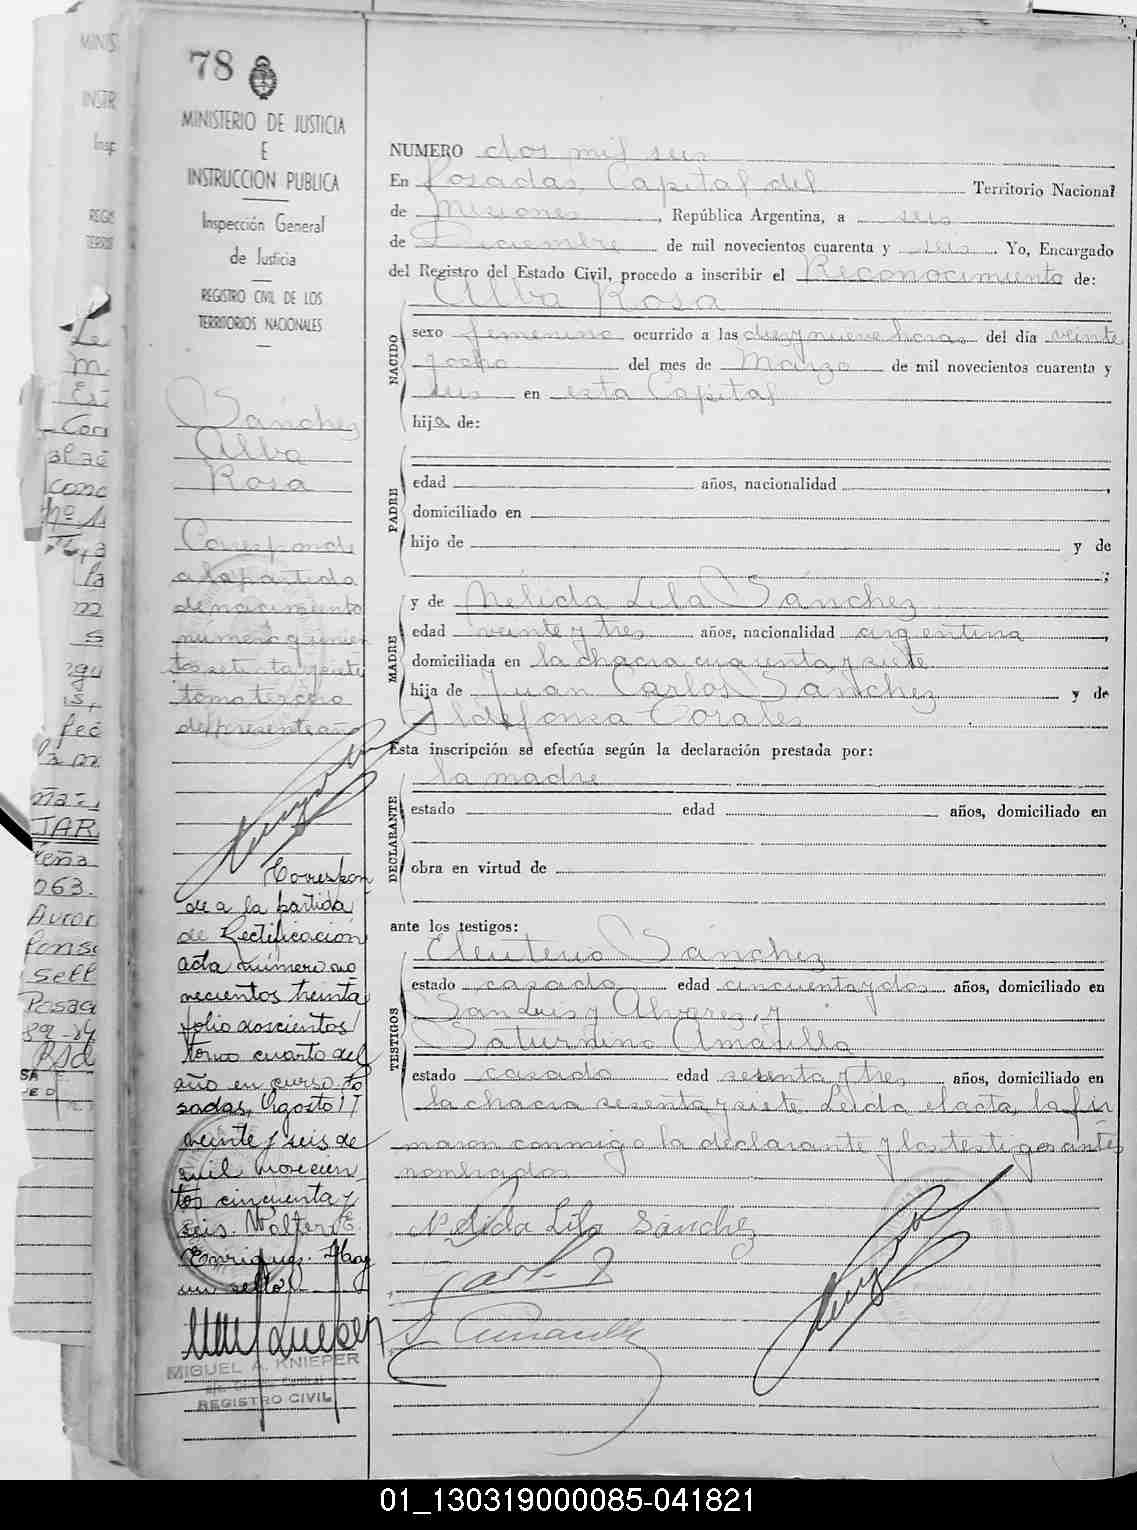 78
MINISTERIO DE JUSTICIA
E
INSTRUCCION PUBLICA
Inspección General
de Justicia
REGISTRO CIVIL DE LOS
TERRITORIOS NACIONALES
Sánchez
Alba
Rosa
Corresponde
a la partida
de nacimiento
número quinien
tos setenta y siete
tomo tercero
del presente año
Correspon
de a la partida
de Rectificación
acta número no
vecientos treinta
folio doscientos
tomo cuarto del
año en curso. Po
sadas, Agosto 17
veinte y seis de
mil novecien
tos cincuenta y
seis. Walter
Enrique. Hay
un sello
MIGUEL A. KNIEPER
REGISTRO CIVIL
NUMERO dos mil seis
En Posadas, Capital del Territorio Nacional
de Misiones, República Argentina, a seis
de Diciembre de mil novecientos cuarenta y seis. Yo, Encargado
del Registro del Estado Civil, procedo a inscribir el Reconocimiento de:
Alba Rosa
NACIDO
sexo femenino ocurrido a las diez y nueve horas del día veinte
y ocho del mes de Marzo de mil novecientos cuarenta y
seis en esta Capital
hija de:
PADRE
edad años, nacionalidad ,
domiciliado en
hijo de y de
;
MADRE
y de Nélida Lila Sánchez
edad veinte y tres años, nacionalidad argentina,
domiciliada en la chacra cuarenta y siete
hija de Juan Carlos Sánchez y de
Ildefonsa Corales
Esta inscripción se efectúa según la declaración prestada por:
DECLARANTE
la madre
estado edad años, domiciliado en
obra en virtud de
ante los testigos:
TESTIGOS
Eleuterio Sánchez
estado casado edad cincuenta y dos años, domiciliado en
San Luis y Alvarez, y
Saturnino Amarilla
estado casado edad sesenta y tres años, domiciliado en
la chacra sesenta y siete. Leída el acta, la fir
maron conmigo la declarante y los testigos antes
nombrados
Nelida Lila Sánchez
S. Amarilla
01_130319000085-041821